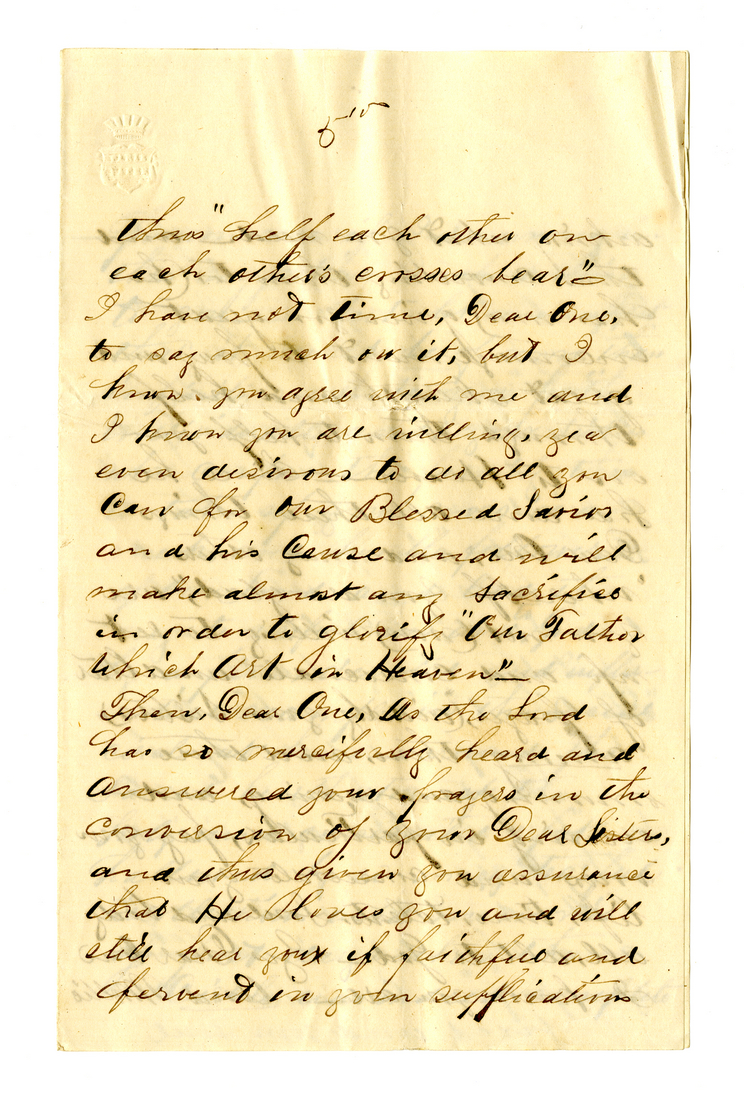 5th
thus "help each other on
each other's crosses bear"
I have not time, Dear One,
to say much on it, but I
know you agree with me and
I know you are willing, yea
even desirous to do all you
Can for Our Blessed Savior
and his Cause and will
make almost any sacrifice
in order to glorify "Our Father
Which Art in Heaven"
Then, Dear One, As the Lord
has so mercifully heard and
Answered your prayers in the
conversion of your Dear Sisters,
and thus given you assurance
that He loves you and will
still hear you if faithful and
fervent in your supplications